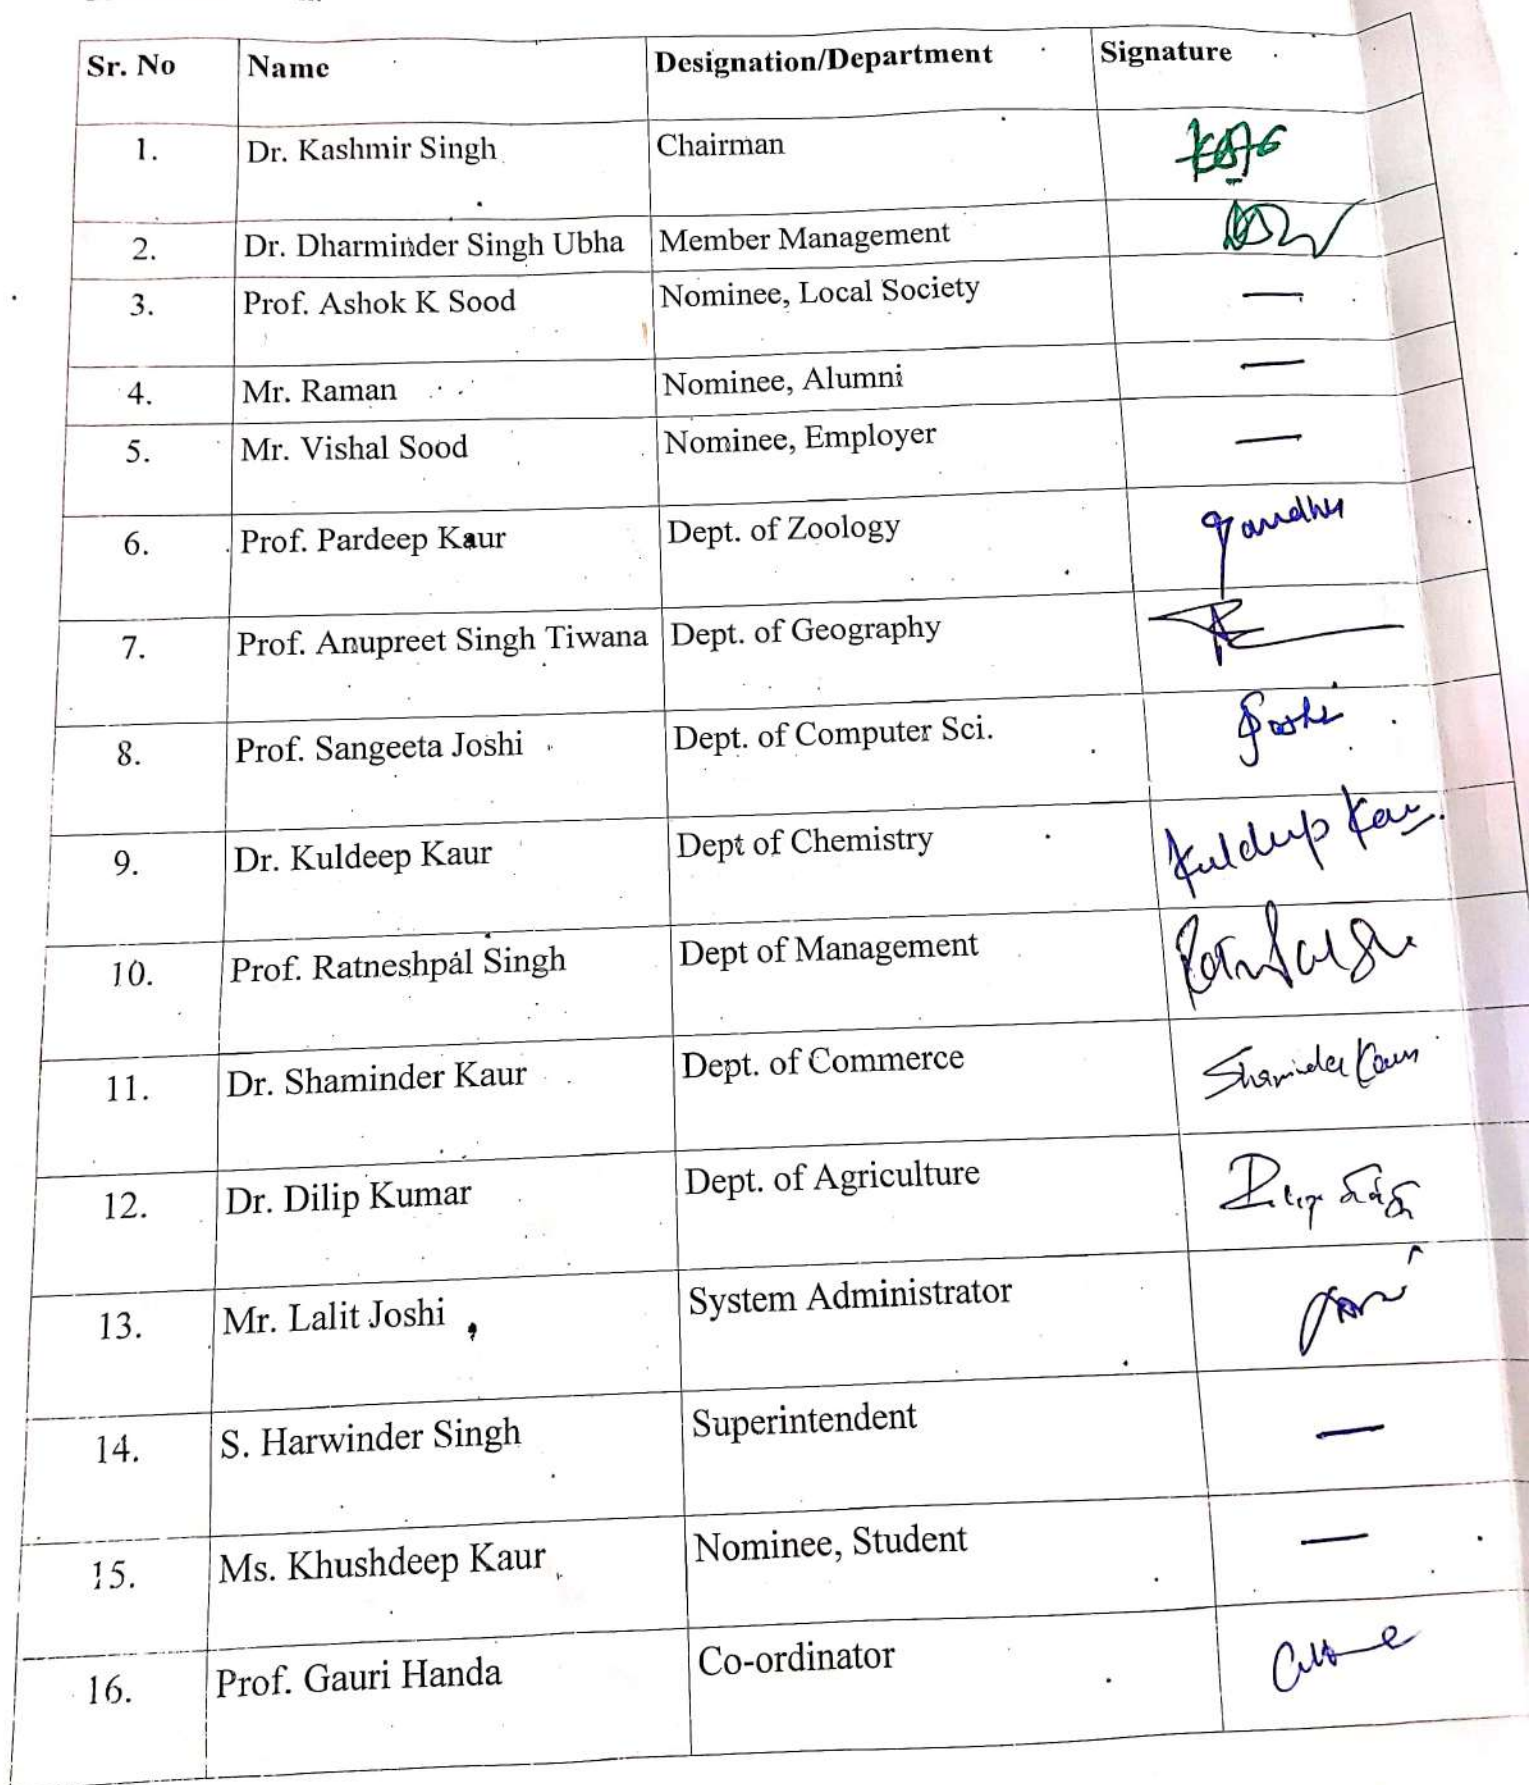 Sr. No Name Designation/Department Signature
1. Dr. Kashmir Singh Chairman
2. Dr. Dharminder Singh Ubha Member Management
3. Prof. Ashok K Sood Nominee, Local Society —
4. Mr. Raman Nominee, Alumni —
5. Mr. Vishal Sood Nominee, Employer —
6. Prof. Pardeep Kaur Dept. of Zoology
7. Prof. Anupreet Singh Tiwana Dept. of Geography
8. Prof. Sangeeta Joshi Dept. of Computer Sci. Joshi
9. Dr. Kuldeep Kaur Dept of Chemistry Kuldeep Kaur
10. Prof. Ratneshpal Singh Dept of Management
11. Dr. Shaminder Kaur Dept. of Commerce Shaminder Kaur
12. Dr. Dilip Kumar Dept. of Agriculture
13. Mr. Lalit Joshi System Administrator
14. S. Harwinder Singh Superintendent —
15. Ms. Khushdeep Kaur Nominee, Student —
16. Prof. Gauri Handa Co-ordinator